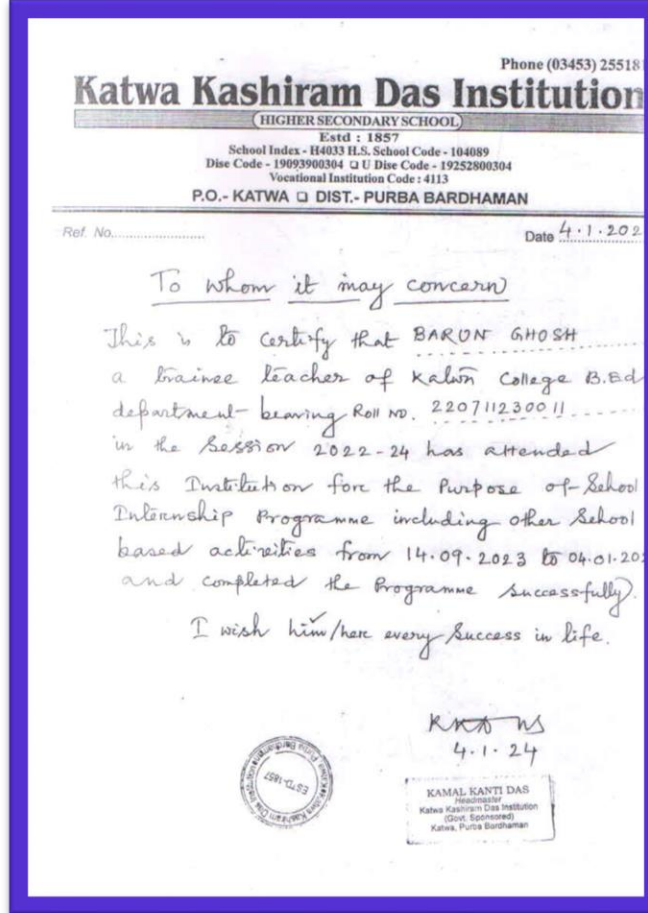 Phone (03453) 25518
Katwa Kashiram Das Institution
(HIGHER SECONDARY SCHOOL)
Estd : 1857
School Index - H4033 H.S. School Code - 104089
Dise Code - 19093900304 ❑ U Dise Code - 19252800304
Vocational Institution Code : 4113
P.O.- KATWA ❑ DIST.- PURBA BARDHAMAN
Ref. No.......................... Date 4.1.202
To whom it may concern
This is to certify that BARUN GHOSH
a trainee teacher of Katwa College B.Ed
department bearing Roll No. 220711230011
in the Session 2022-24 has attended
this Institution for the Purpose of School
Internship Programme including other School
based activities from 14.09.2023 to 04.01.202
and completed the Programme successfully.
I wish him/her every success in life.
4.1.24
ESTD-1857
KAMAL KANTI DAS
Headmaster
Katwa Kashiram Das Institution
(Govt. Sponsored)
Katwa, Purba Bardhaman